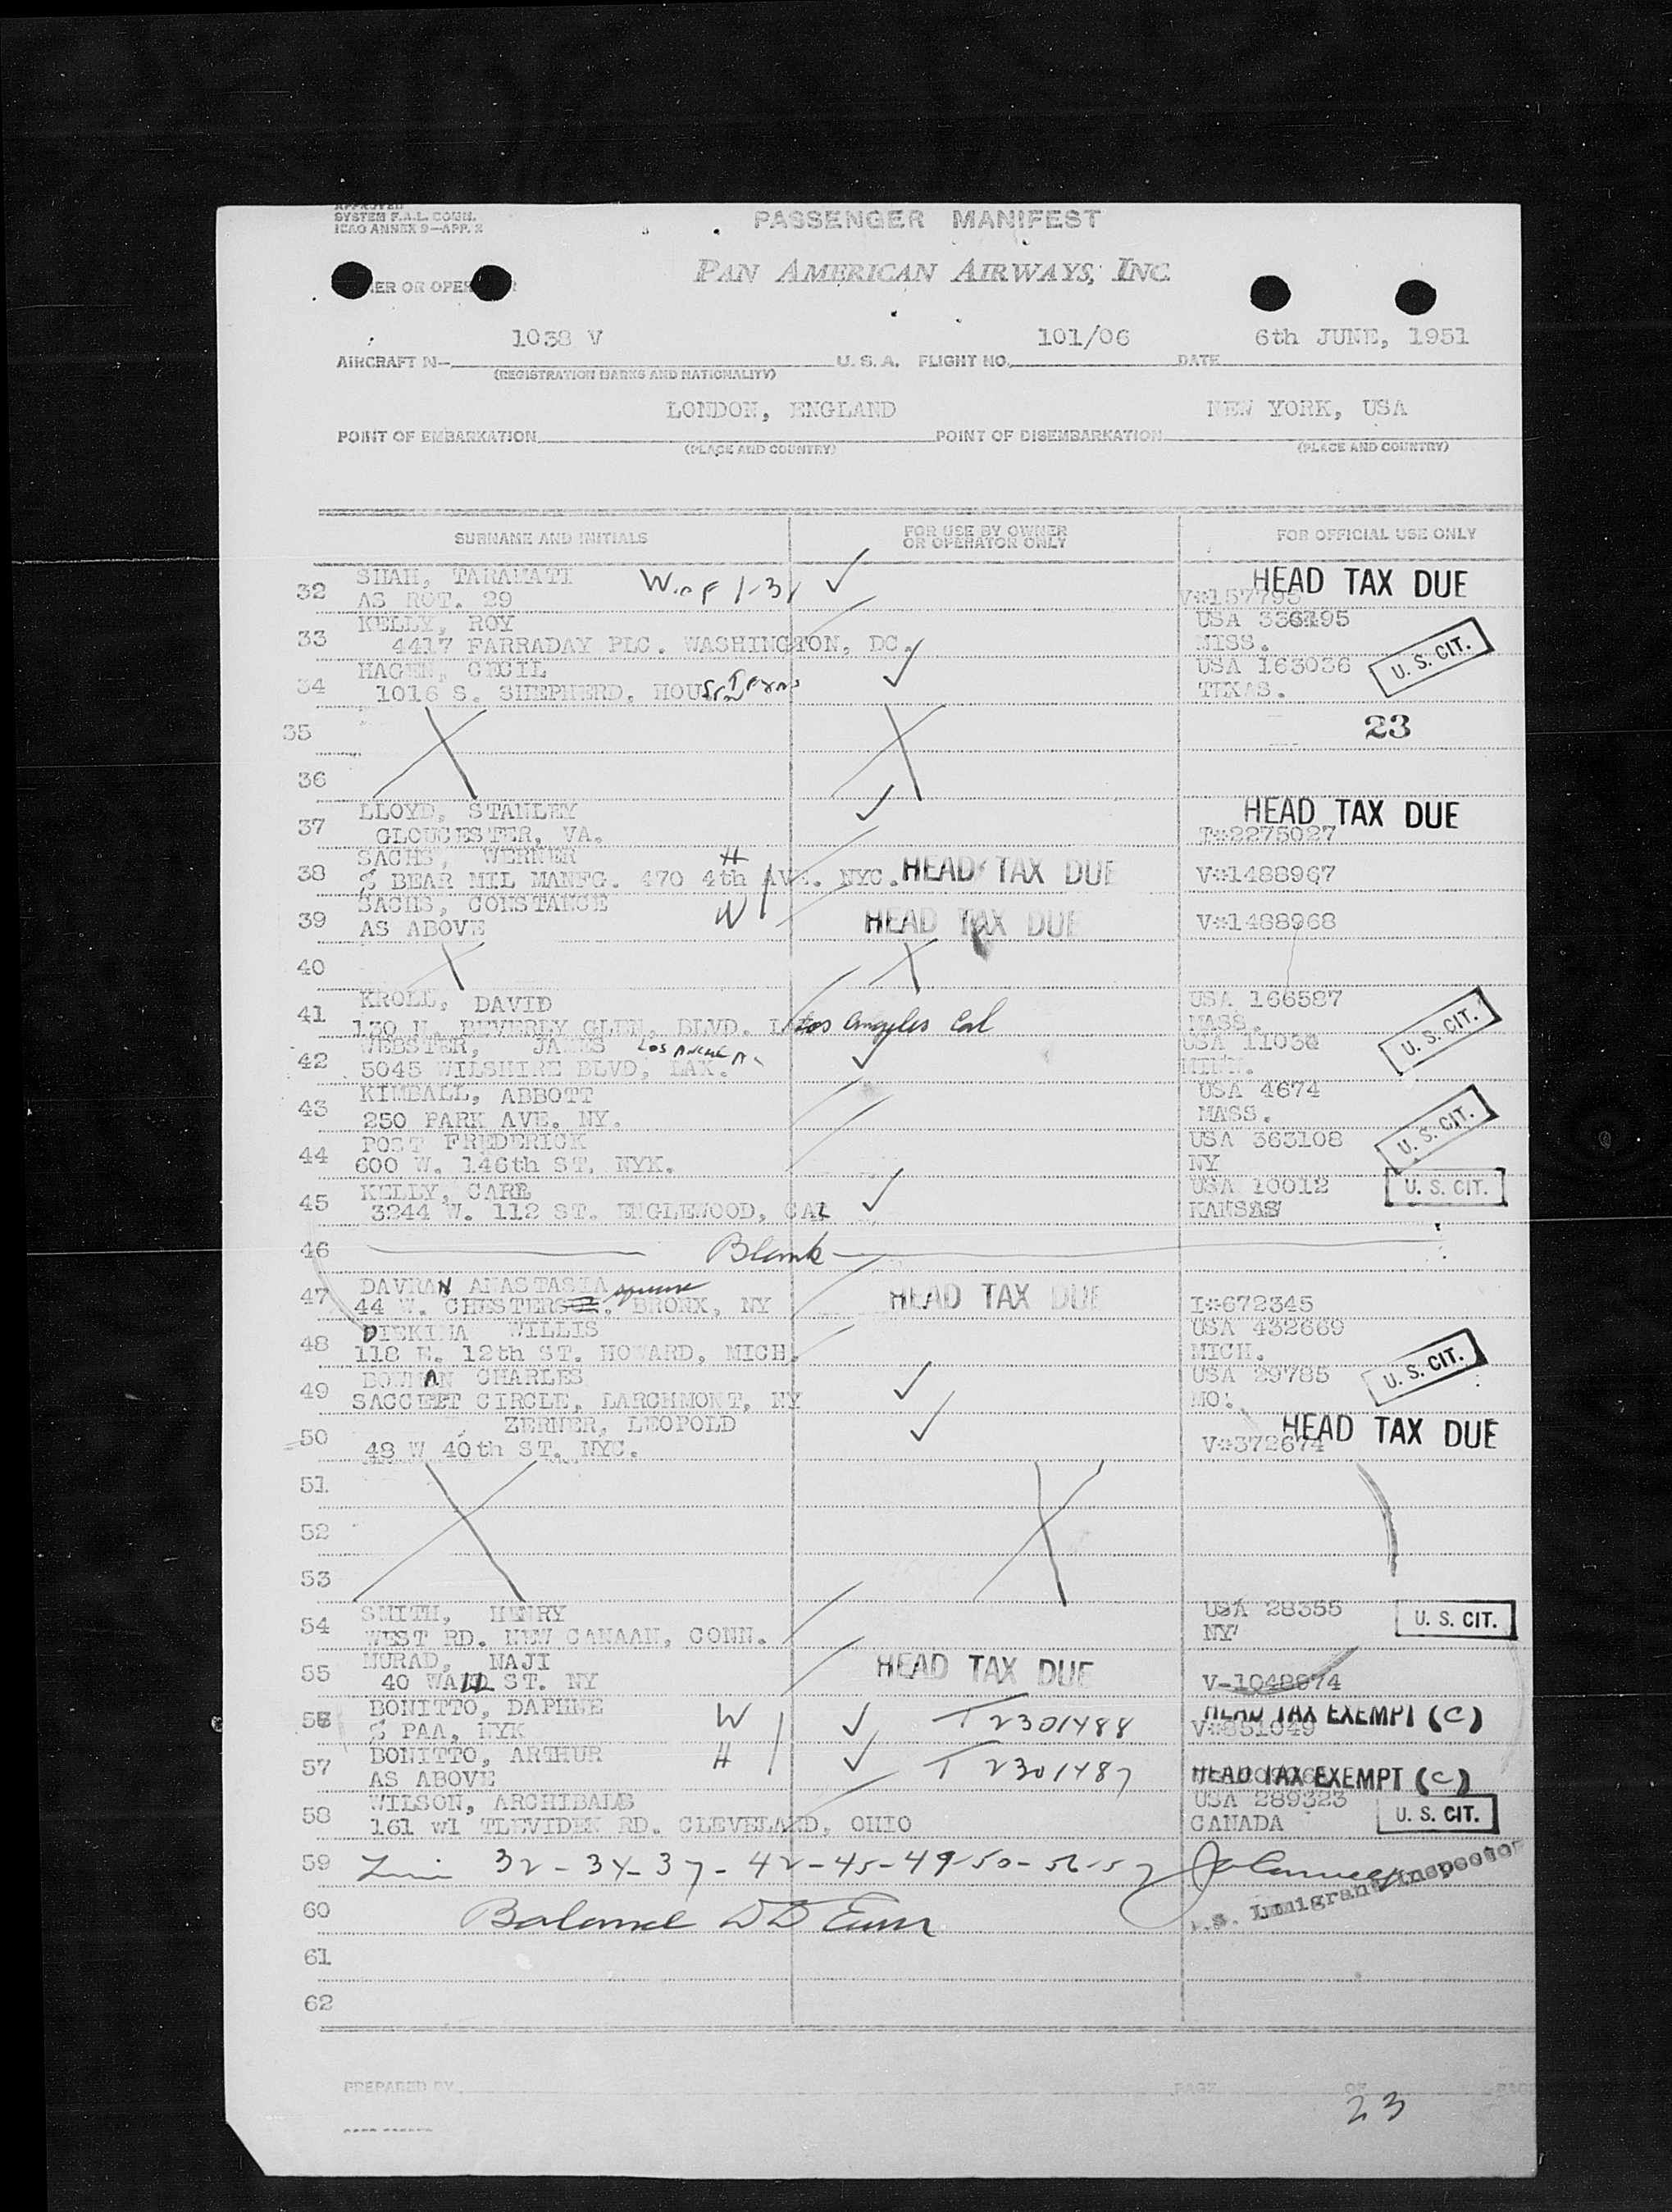 APPROVED
SYSTEM F.A.L. COMM.
ICAO ANNEX 9—APP. 2
PASSENGER MANIFEST
PAN AMERICAN AIRWAYS, INC.
NER OR OPER R
1038 V 101/06 6th JUNE, 1951
AIRCRAFT N— U. S. A. FLIGHT NO. DATE
(REGISTRATION MARKS AND NATIONALITY)
LONDON, ENGLAND NEW YORK, USA
POINT OF EMBARKATION POINT OF DISEMBARKATION
(PLACE AND COUNTRY) (PLACE AND COUNTRY)
SURNAME AND INITIALS FOR USE BY OWNER OR OPERATOR ONLY FOR OFFICIAL USE ONLY
32 SHAH, TARAMATI HEAD TAX DUE
AS ROT. 29 V#157795
33 KELLY, ROY USA
4417 FARRADAY PLC. WASHINGTON, DC. MISS.
34 HAGEN, CECIL USA 163036 U. S. CIT.
1016 S. SHEPHERD, HOUSTON TEXAS TEXAS.
35 23
36
37 LLOYD, STANLEY HEAD TAX DUE
GLOUCESTER, VA. I#2275027
38 SACHS, WERNER H
% BEAR MIL MANFG. 470 4th AVE. NYC. HEAD TAX DUE V#1488967
39 SACHS, CONSTANCE W HEAD TAX DUE
AS ABOVE V#1488968
40
41 KROLL, DAVID USA 166587
130 N. BEVERLY GLEN, BLVD. Los Angeles Cal MASS. U. S. CIT.
42 WEBSTER, JAMES USA
5045 WILSHIRE BLVD, LAX. MINN.
43 KIMBALL, ABBOTT USA 4674
250 PARK AVE. NY. MASS. U. S. CIT.
44 POST FREDERICK USA 363108
600 W. 146th ST. NYK. NY
45 KELLY, CARL USA 10012 U. S. CIT.
3244 W. 112 ST. ENGLEWOOD, CAL KANSAS
46 Blank
47 DAVRAN ANASTASIA square
44 W. CHESTER, BRONX, NY HEAD TAX DUE I#672345
48 WILLIS USA 432669
118 E. 12th ST. HOWARD, MICH. MICH.
49 BOWMAN CHARLES USA 29785 U. S. CIT.
CIRCLE, LARCHMONT, NY MO.
50 ZERNER, LEOPOLD HEAD TAX DUE
48 W 40th ST. NYC. V#372674
51
52
53
54 SMITH, HENRY USA 28355 U. S. CIT.
WEST RD. NEW CANAAN, CONN. NY
55 MURAD, NAJI HEAD TAX DUE
40 WALL ST. NY V-1048974
56 BONITTO, DAPHNE W T 2301488 HEAD TAX EXEMPT (C)
% PAA, NYK V#851049
57 BONITTO, ARTHUR H T 2301487
AS ABOVE HEAD TAX EXEMPT (C)
58 WILSON, ARCHIBALD USA 289323
161 W1 RD. CLEVELAND, OHIO CANADA U. S. CIT.
59 32 - 34 - 37 - 42 - 45 - 49 - 50 - 56 - 57
60 Balance U.S. Immigrant Inspector
61
62
PREPARED BY PAGE OF PAGES
23